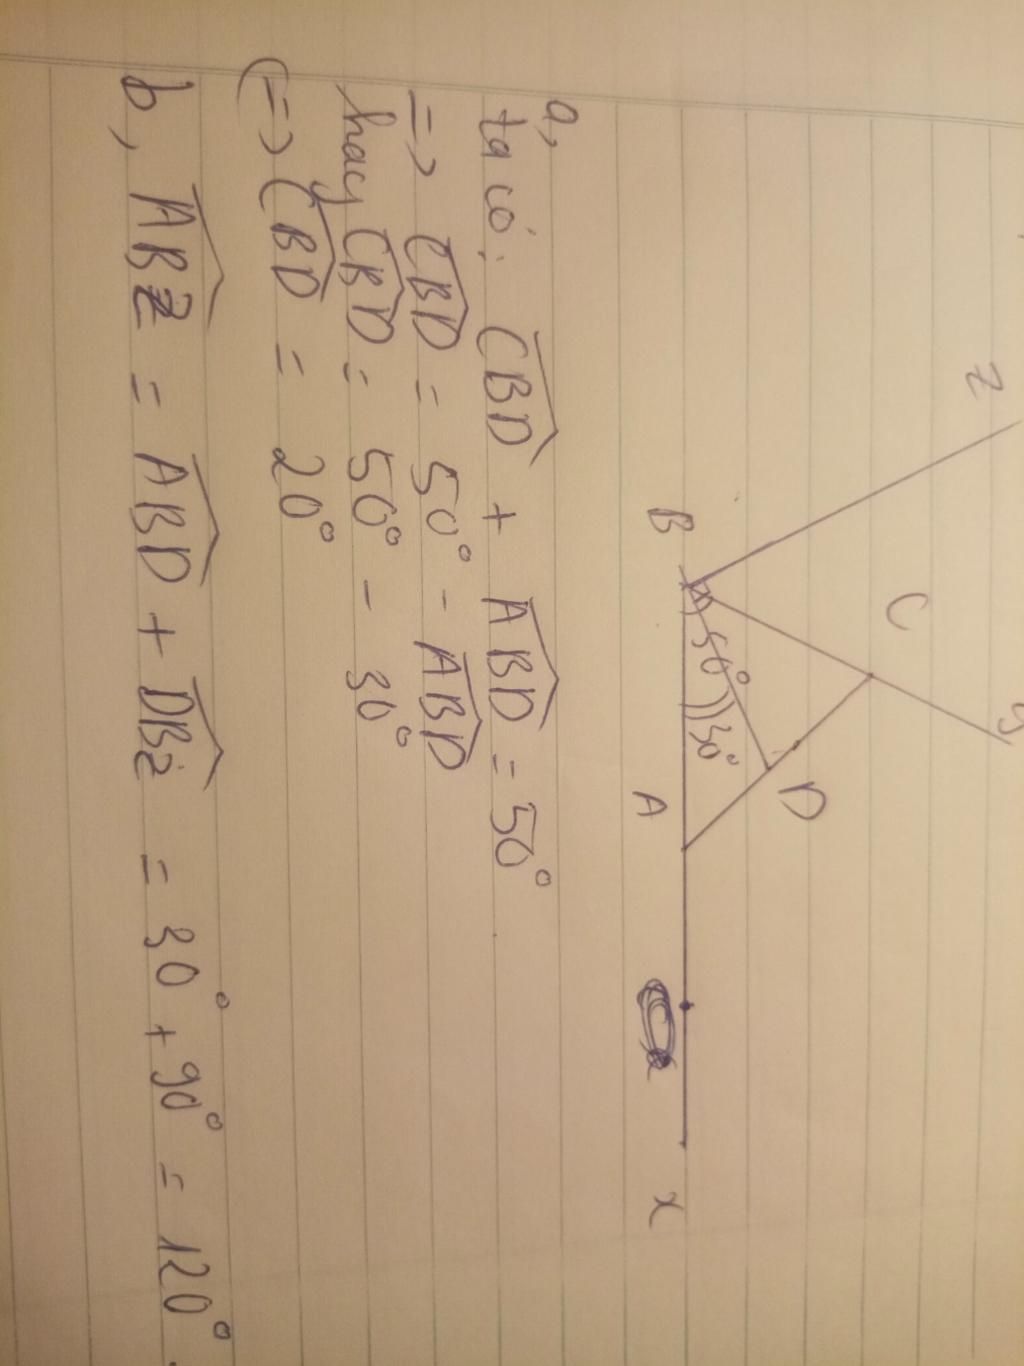 z
y
C
B
50°
30°
D
A
x
a,
ta có: CBD + ABD = 50°
=> CBD = 50° - ABD
hay CBD = 50° - 30°
(=> CBD = 20°
b, ABz = ABD + DBz = 30° + 90° = 120°.